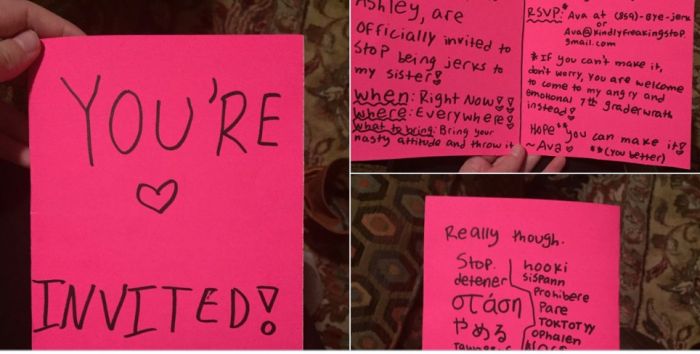 YOU'RE
♡
INVITED!
Ashley, are
officially invited to
stop being jerks to
my sister!
when: Right Now!!
where: Everywhere!
What to bring: Bring your
nasty attitude and throw it
RSVP:* Ava at (859)-Bye-jerk
or
Ava@Kindlyfreakingstop.
gmail.com
*If you can't make it,
don't worry, you are welcome
to come to my angry and
emotional 7th grader wrath
instead!
Hope** you can make it!
~Ava ♡
**(you better)
Really though.
Stop.
detener
στάση
やめる
hooki
sispann
Prohibere
Pare
TOKTOTYY
ophalen